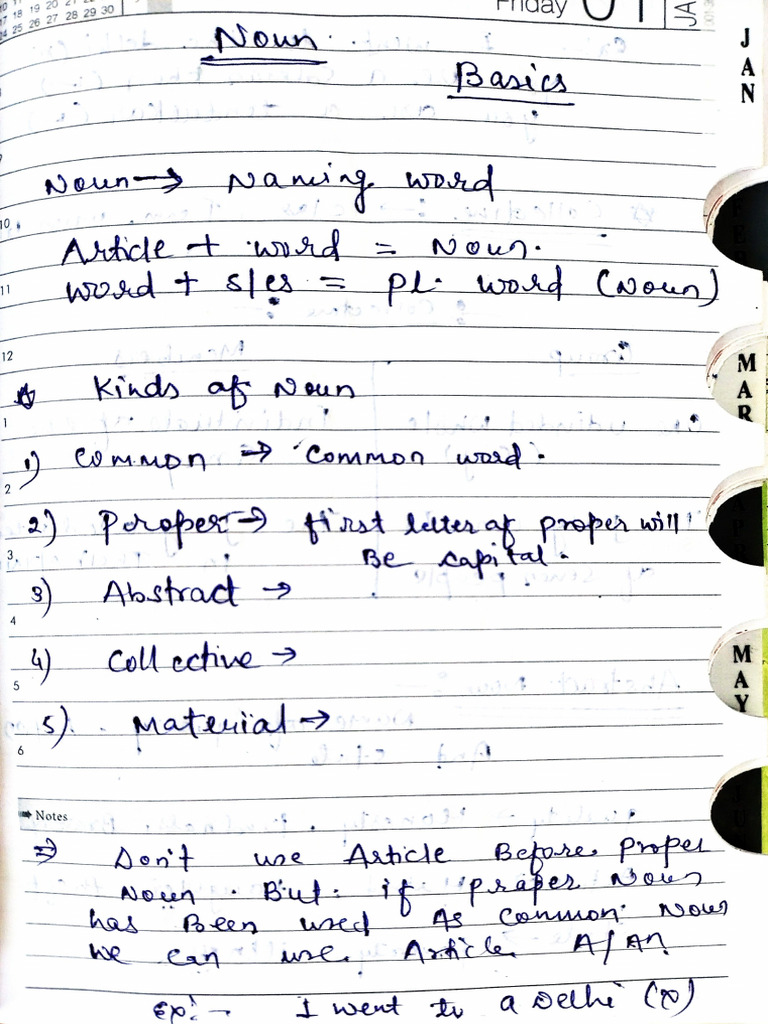 18 19 20 21 22
24 25 26 27 28 29 30
Friday 01 JA
Noun
Basics
JAN
Noun → Naming word
10
Article + word = Noun.
11
word + s/es = pl. word (Noun)
12
Kinds of Noun
MAR
1
1) Common ⇒ Common word.
2
2) Proper → first letter of proper will
3
Be capital.
3) Abstract →
4
4) Collective →
5
MAY
5) Material →
6
Notes
⇒ Don't use Article Before proper
Noun. But if proper Noun
has Been used As common Noun
we can use Article A/An
Ex:- I went to a Delhi (x)